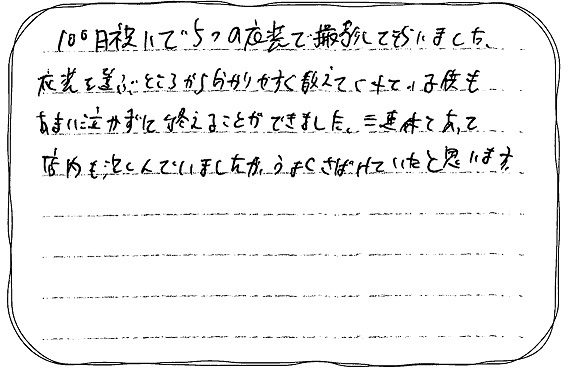 100日祝いで5つの衣装で撮影してもらいました。
衣装を選ぶところから分かりやすく教えてくれて、子供も
あまり泣かずに終えることができました。三連休とあって
店内も混んでいましたが、うまくさばけていたと思います。